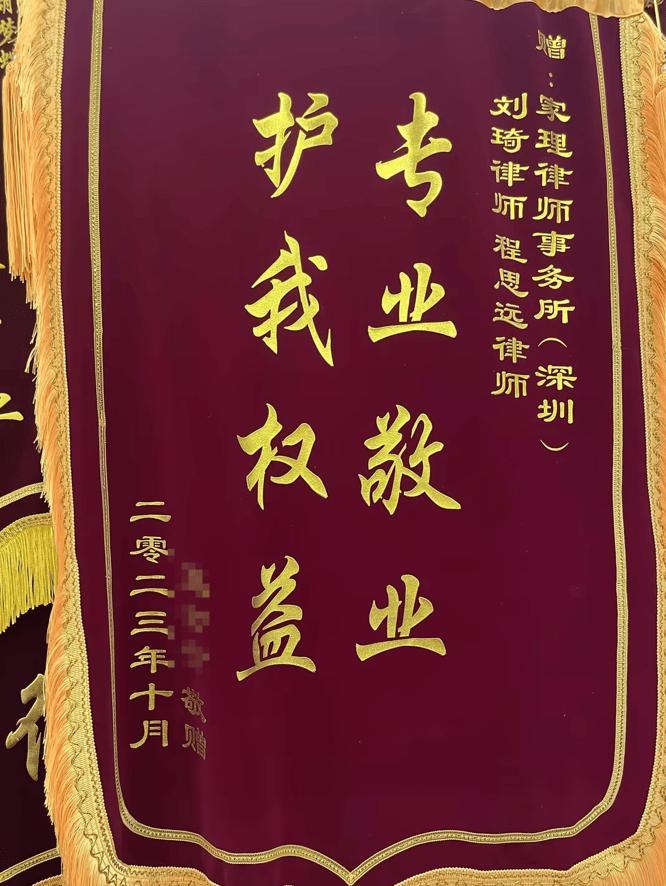 赠：家理律师事务所（深圳）
刘琦律师 程思远律师
专业敬业
护我权益
敬赠
二零二三年十月